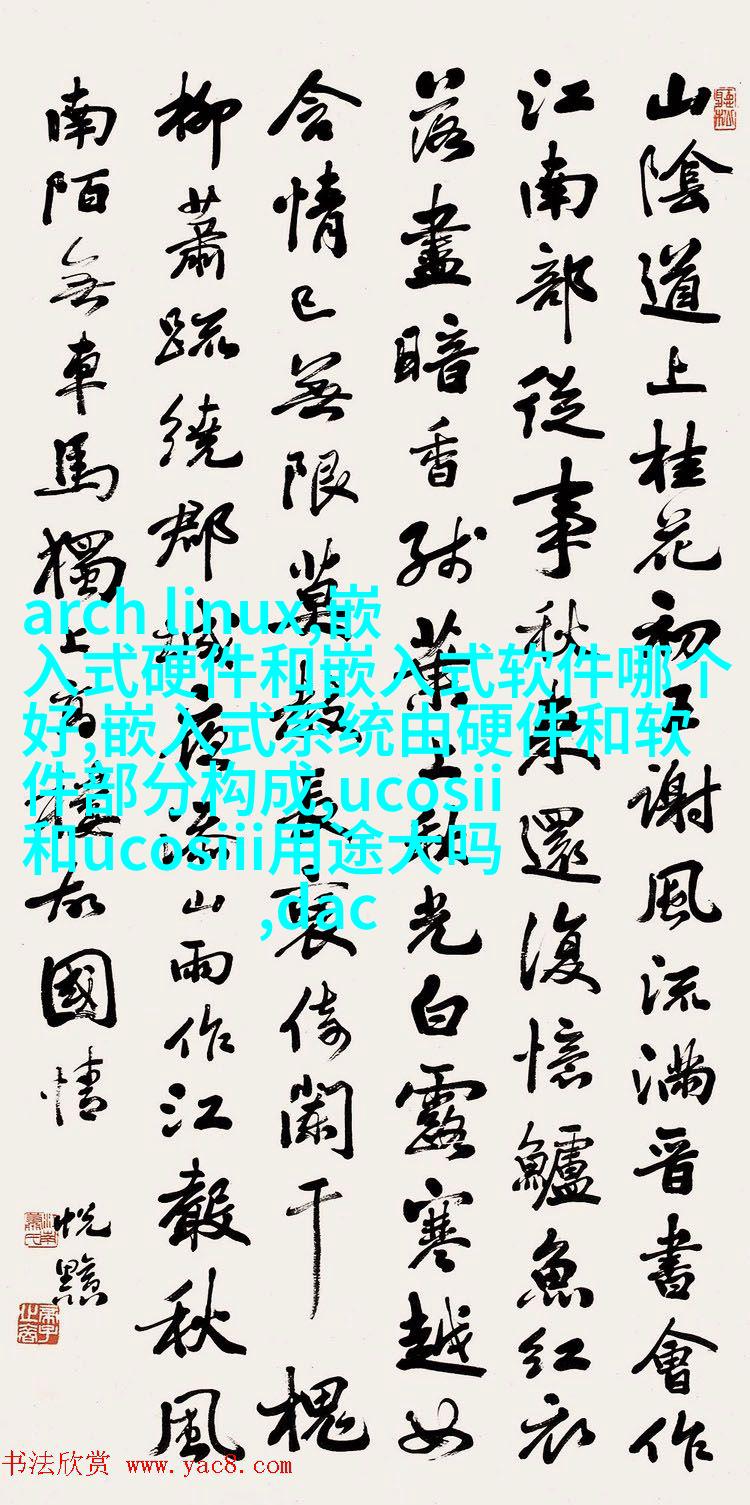 山陰道上桂花初王謝風流滿晋書曾作
江南部從事秋來還復憶鱸魚紅衣
落盡暗香殘葉上秋光白露寒越女
含情已無限莫教長袖倚闌干槐
柳蕭疏繞郡城夜添山雨作江聲秋風
南陌無車馬獨上高樓故國情
arch linux,嵌
入式硬件和嵌入式软件哪个
好,嵌入式系统由硬件和软
件部分构成,ucosii
和ucosiii用途大吗
,dac
书法欣赏 www.yac8.com